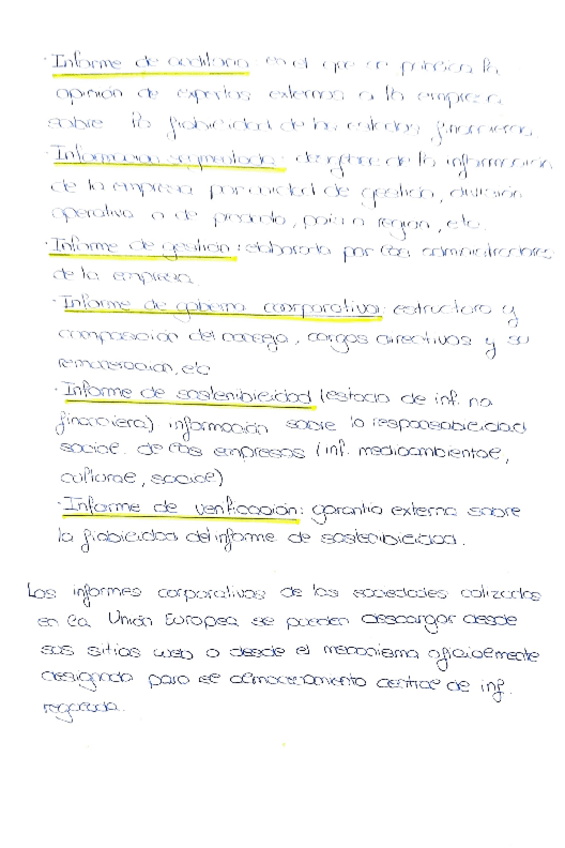 · Informe de auditoria: en el que se publica la
opinión de expertos externos a la empresa
sobre la fiabilidad de los estados financieros.
Información segmentada: desglose de la información
de la empresa por unidad de gestión, división
operativa o de producto, país o región, etc.
· Informe de gestión: elaborado por los administradores
de la empresa.
· Informe de gobierno coorporativo: estructura y
composición del consejo, cargos directivos y su
remuneración, etc
· Informe de sostenibilidad (estado de inf. no
financiera) información sobre la responsabilidad
social de las empresas (inf. medioambiental,
cultural, social)
· Informe de verificación: garantía externa sobre
la fiabilidad del informe de sostenibilidad.
Los informes corporativos de las sociedades cotizadas
en la Unión Europea se pueden descargar desde
sus sitios web o desde el mecanismo oficialmente
designado para el almacenamiento central de inf.
regulada.